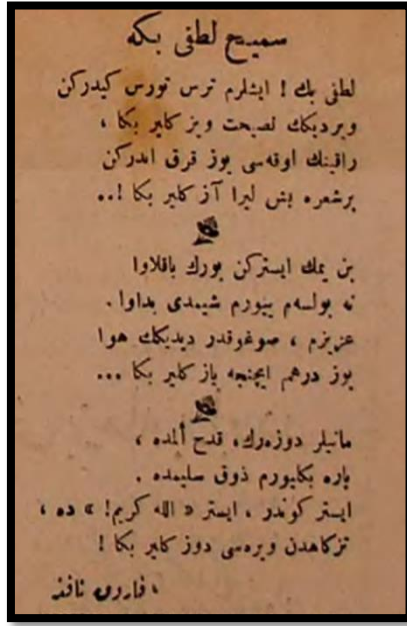 سميح لطفى بكه
لطفى بك ! ايشلرم ترس تورس كيدركن
ويرديكك نصيحت ويز كلير بكا ،
راقينك اوقه‌سى يوز قرق ايدركن
برشعره بش ليرا آز كلير بكا !..
بن يمك ايستركن بورك باقلاوا
نه بولسه‌م يييورم شيمدى بداوا .
عزيزم ، صوغوقدر ديديكك هوا
يوز درهم ايچنجه ياز كلير بكا ...
مانيلر دوزه‌رك، قدح ألمده ،
پاره بكليورم ذوق سليمده .
ايستر كوندر ، ايستر « الله كريم! » ده ،
تزكاهدن ويره‌سى دوز كلير بكا !
فاروق نافذ